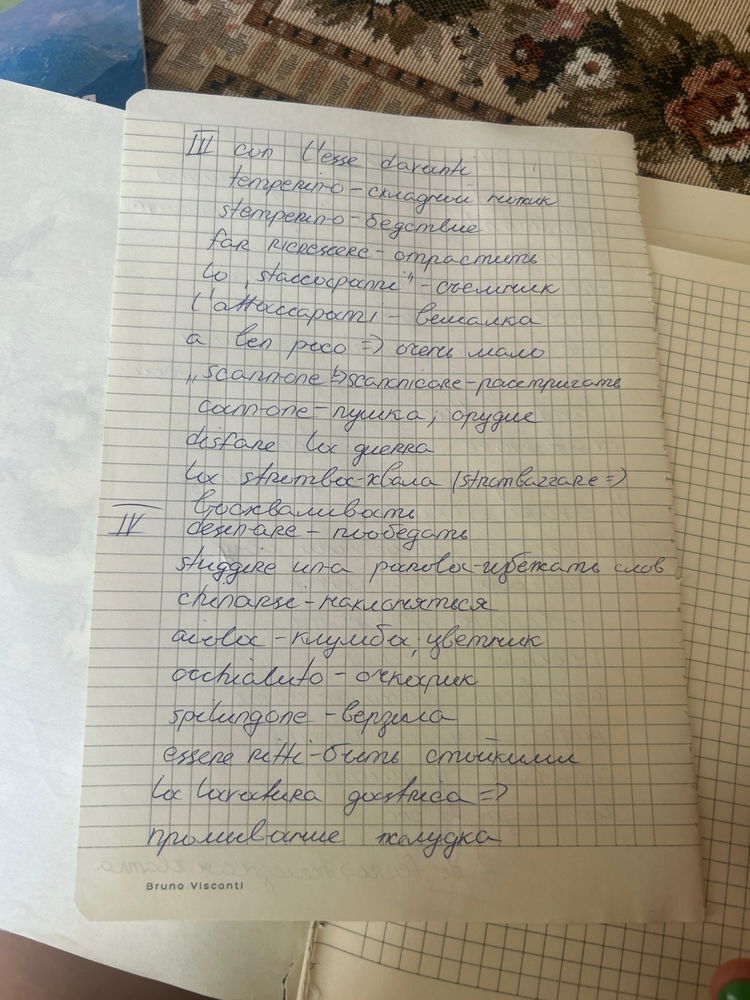 III con l'esse davanti
temperino - складной ножик
stemperino - бедствие
far ricrescere - отрастить
lo „staccapanni" - съемник
l'attaccapanni - вешалка
a ben poco => очень мало
„scannone" scannicare - расстригать
cannone - пушка; орудие
disfare la guerra
la stromba - хвала (strombazzare =>
восхваливость
IV desinare - пообедать
sfuggire una parola - избежать слов
chinarsi - наклоняться
aiola - клумба, цветник
occhialuto - очкарик
spilungone - верзила
essere ritti - быть стойкими
la lavatura gastrica =>
промывание желудка
Bruno Visconti